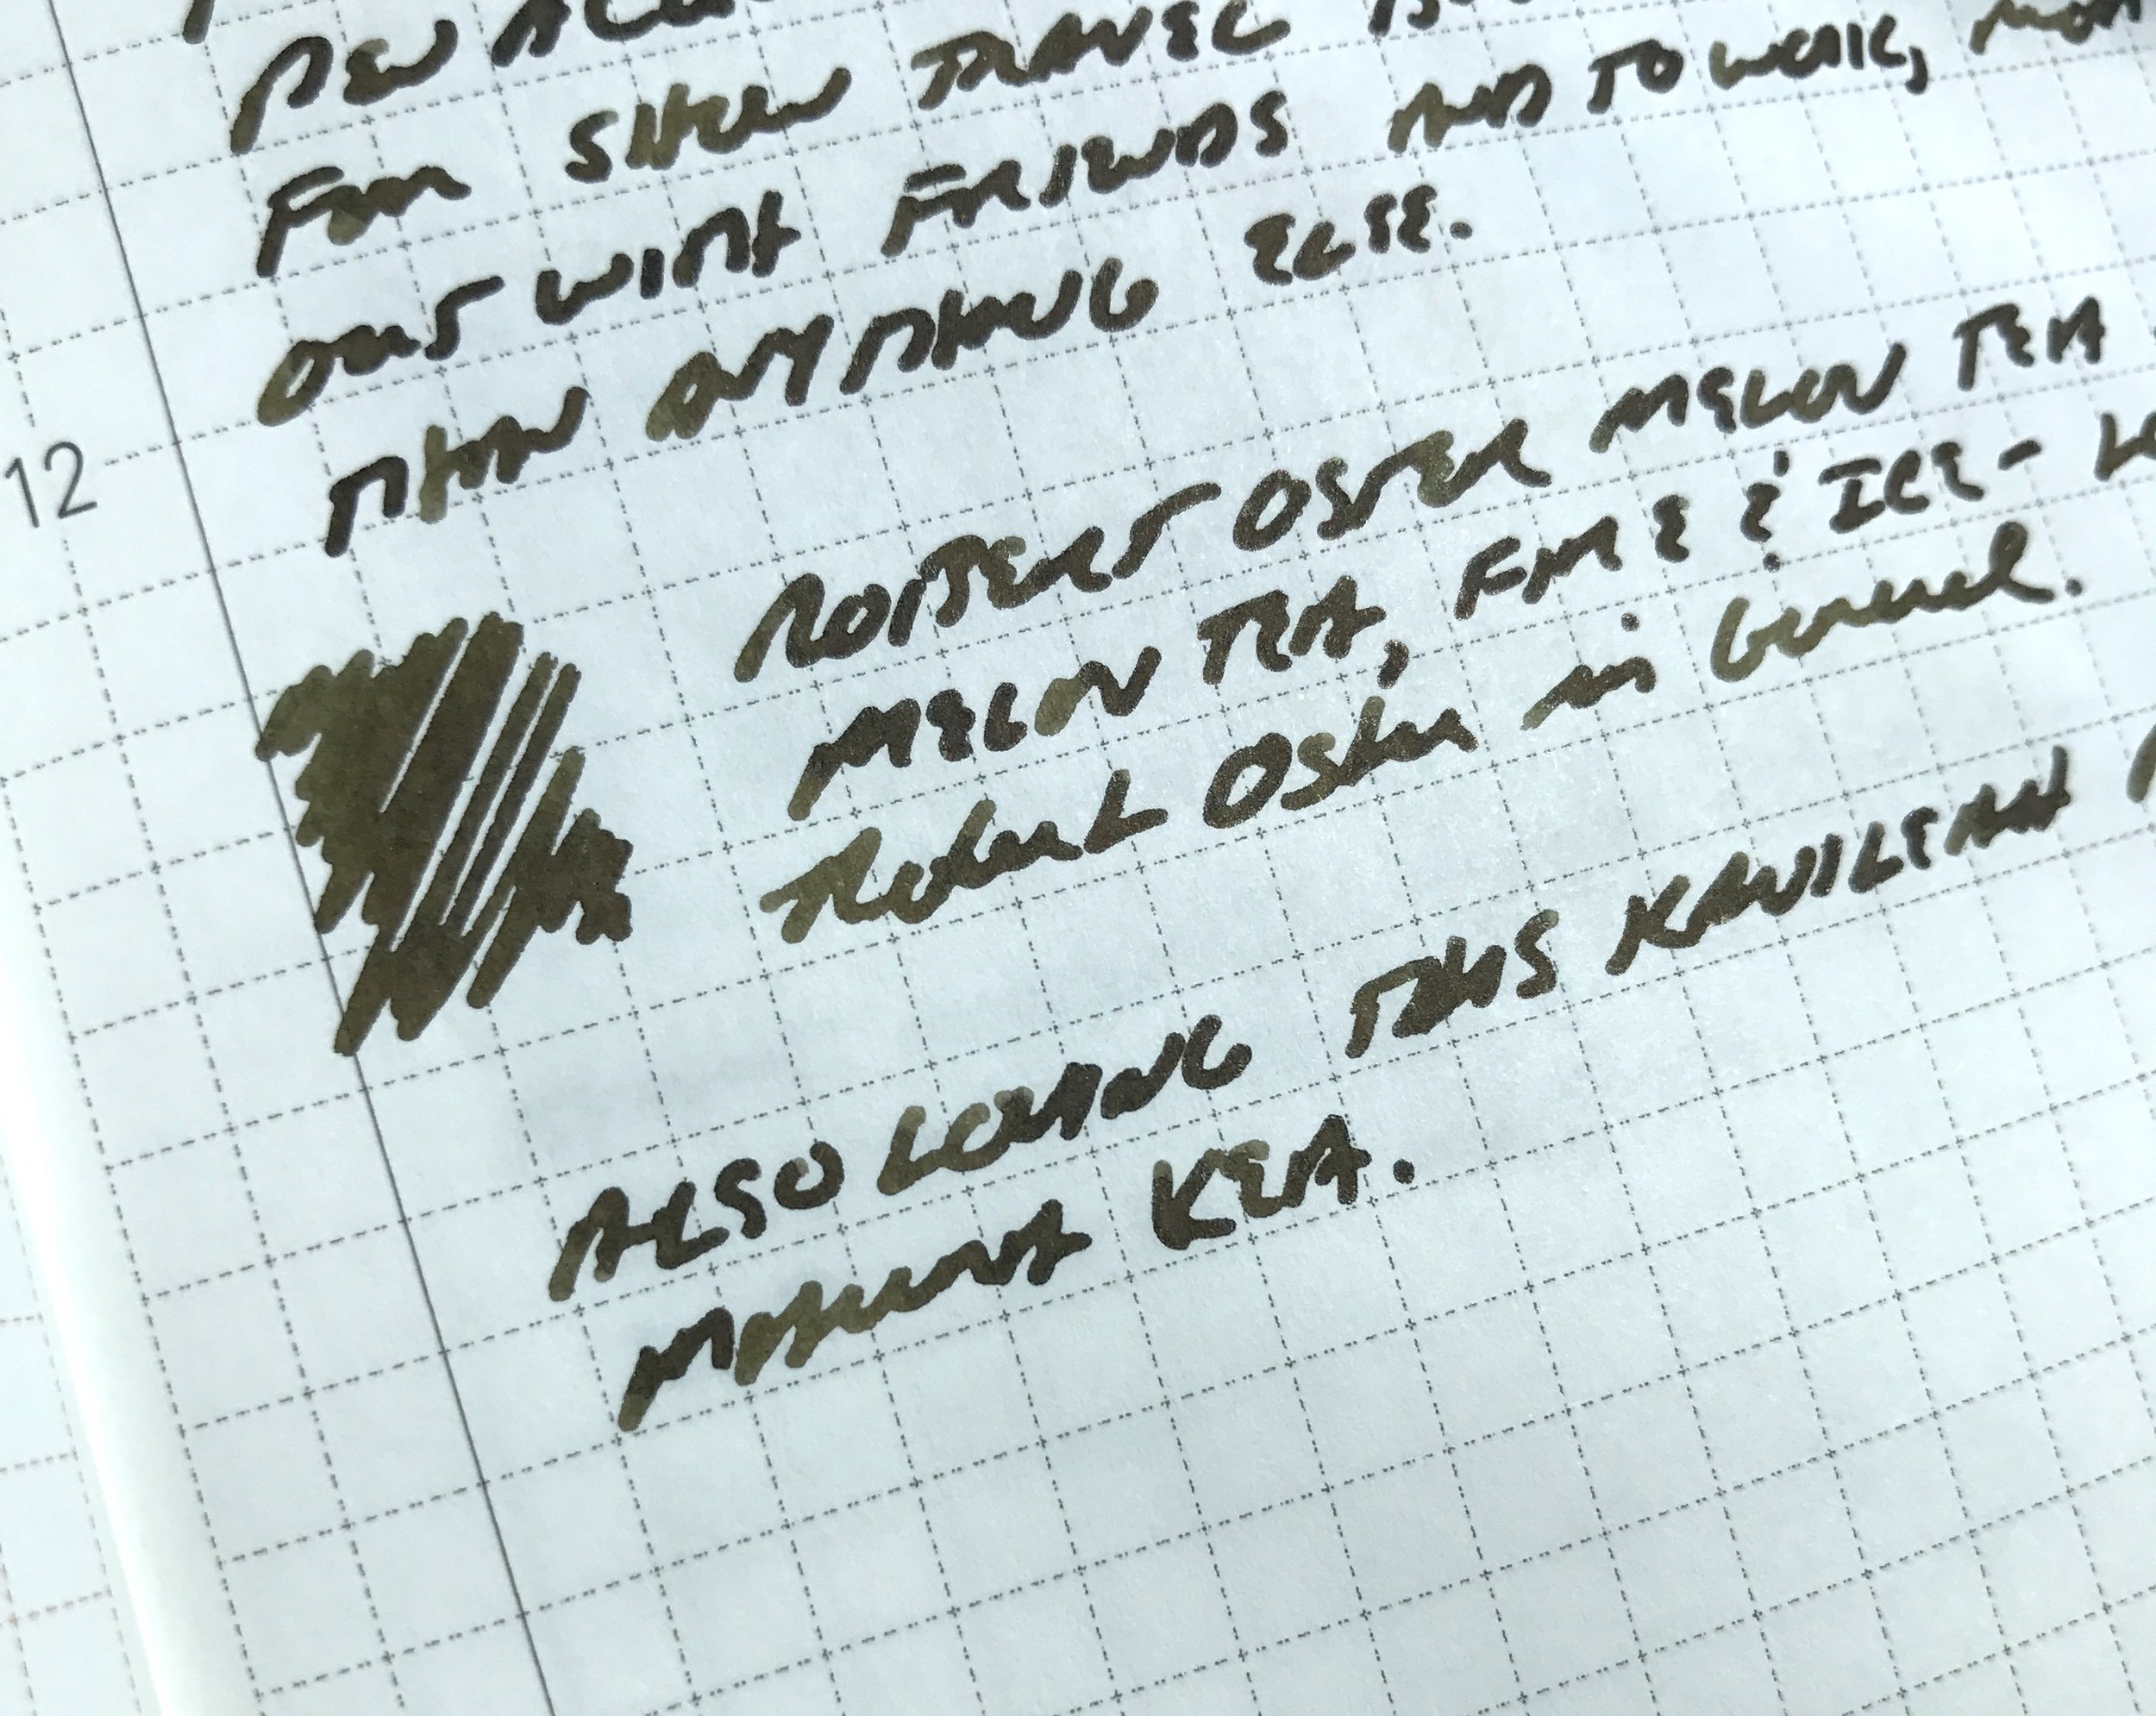 PEN
FOR SHOW TRAVEL
OUT WITH FRIENDS AND TO WORK,
THAN ANYTHING ELSE.
12
ROBERT OSTER MELON TEA
MELON TEA, FIRE & ICE -
Robert Oster in General.
ALSO LOVING THIS KAWILEAH
MAUNA KEA.